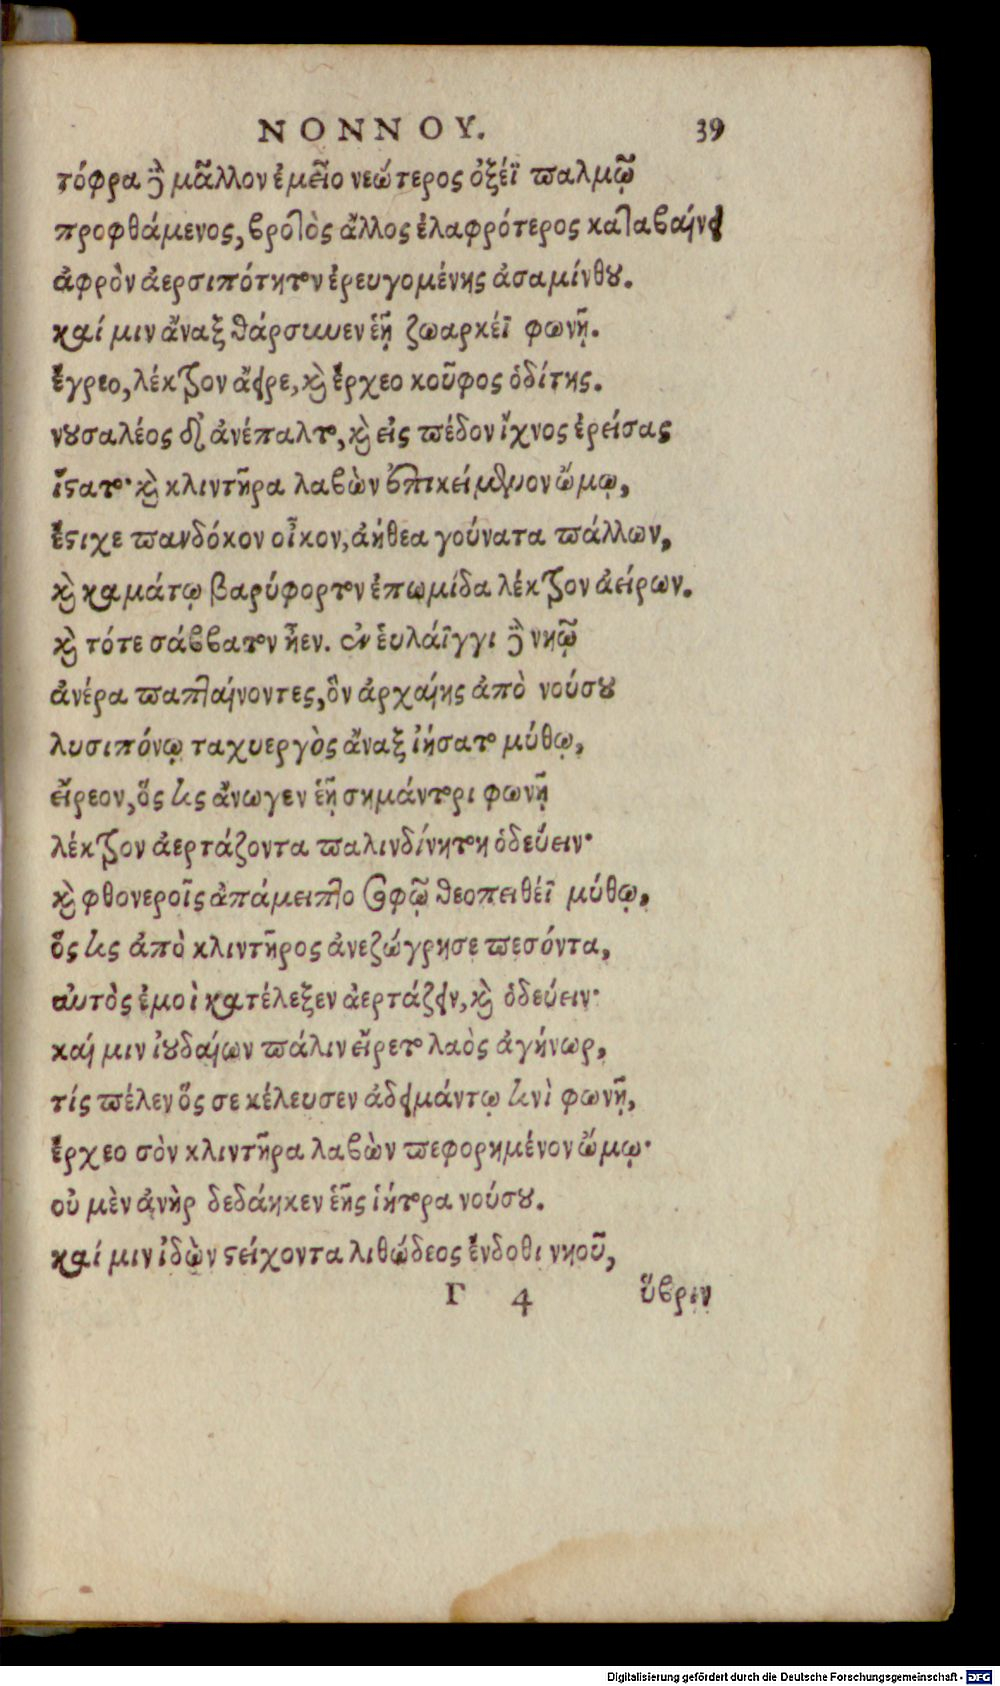 ΝΟΝΝΟΥ. 39
τόφρα ἢ μᾶλλον ἐμεῖο νεώτερος ὀξέϊ παλμῷ
προφθάμενος, βροτὸς ἄλλος ἐλαφρότερος καταβαίνει
ἀφρὸν ἀερσιπότητον ἐρευγομένης ἀσαμίνθου.
καί μιν ἄναξ θάρσυνεν ἑῇ ζωαρκέϊ φωνῇ.
ἔγρεο, λέκτρον ἄειρε, καὶ ἔρχεο κοῦφος ὁδίτης.
νουσαλέος δ' ἀνέπαλτο, καὶ εἰς πέδον ἴχνος ἐρείσας
ἵστατο· καὶ κλιντῆρα λαβὼν ἐπικείμενον ὤμῳ,
ἔστιχε πανδόκον οἶκον, ἀήθεα γούνατα πάλλων,
καὶ καμάτῳ βαρύφορτον ἐπωμίδα λέκτρον ἀείρων.
καὶ τότε σάββατον ἦεν. ἐν εὐλάϊγγι δὲ νηῷ
ἀνέρα παπταίνοντες, ὃν ἀρχαίης ἀπὸ νούσου
λυσιπόνῳ ταχυεργὸς ἄναξ ἰήσατο μύθῳ,
εἴρεον, ὅς τις ἄνωγεν ἑῇ σημάντορι φωνῇ
λέκτρον ἀερτάζοντα παλινδίνητον ὁδεύειν·
καὶ φθονεροῖς ἀπάμειπτο σοφῷ θεοπειθέϊ μύθῳ,
ὅς τις ἀπὸ κλιντῆρος ἀνεζώγρησε πεσόντα,
αὐτὸς ἐμοὶ κατέλεξεν ἀερτάζειν, καὶ ὁδεύειν·
καί μιν ἰουδαίων πάλιν εἴρετο λαὸς ἀγήνωρ,
τίς πέλεν ὅς σε κέλευσεν ἀδειμάντῳ τινὶ φωνῇ,
ἔρχεο σὸν κλιντῆρα λαβὼν πεφορημένον ὤμῳ·
οὐ μὲν ἀνὴρ δεδάηκεν ἑῆς ἰήτορα νούσου.
καί μιν ἰδὼν στείχοντα λιθώδεος ἔνδοθι νηοῦ,
Γ 4 ὕβριν
Digitalisierung gefördert durch die Deutsche Forschungsgemeinschaft - DFG